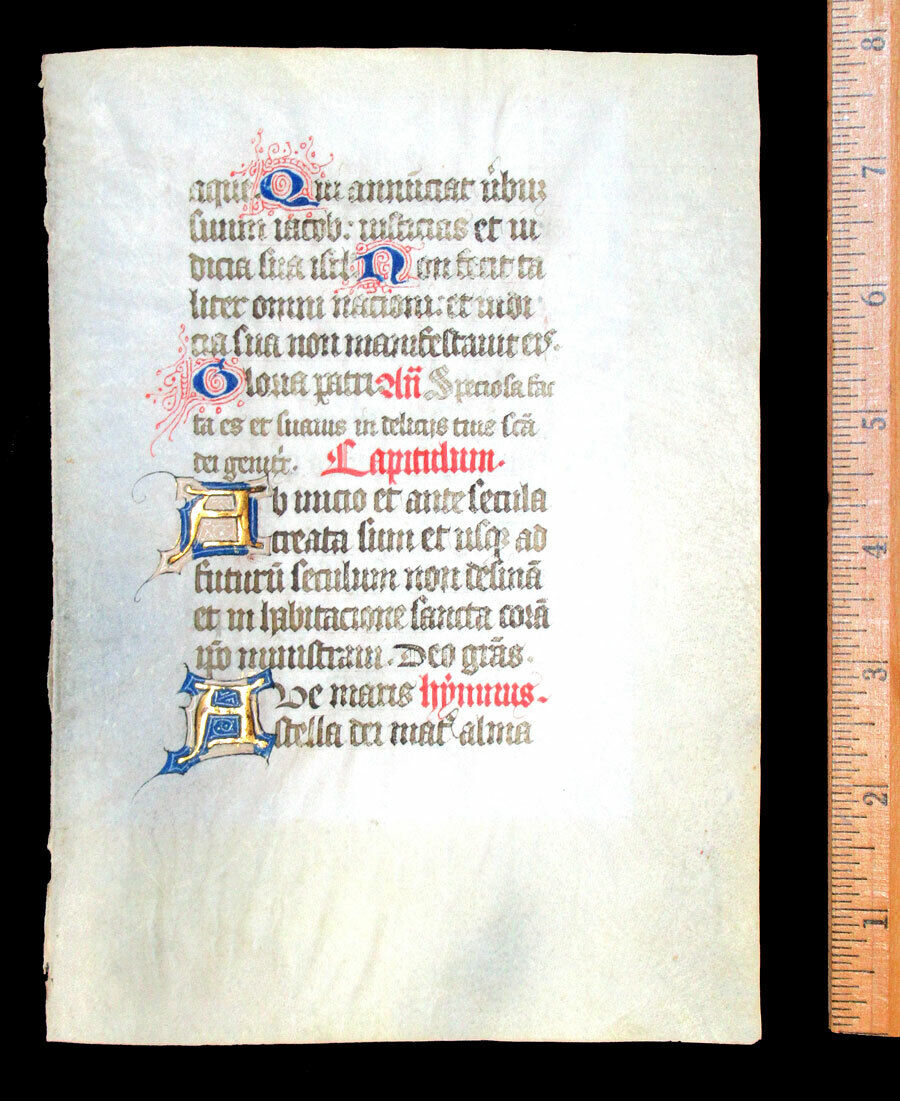 aque. Qui annūciat ūbum
suum iacob: iusticias et iu
dicia sua isrl. Non fecit ta
liter omni nationi: et iudi
cia sua non manifestauit eis.
Gloria patri Añ Speciosa fac
ta es et suauis in delicijs tuis scā
dei genitͥx. Capitulum.
Ab inicio et ante secula
creata sum et usqꝫ ad
futurū seculum non desinā
et in habitacione sancta corā
ip̄o ministraui. Deo grās.
Ave maris hymnus.
stella dei matͬ alma
8
7
6
5
4
3
2
1